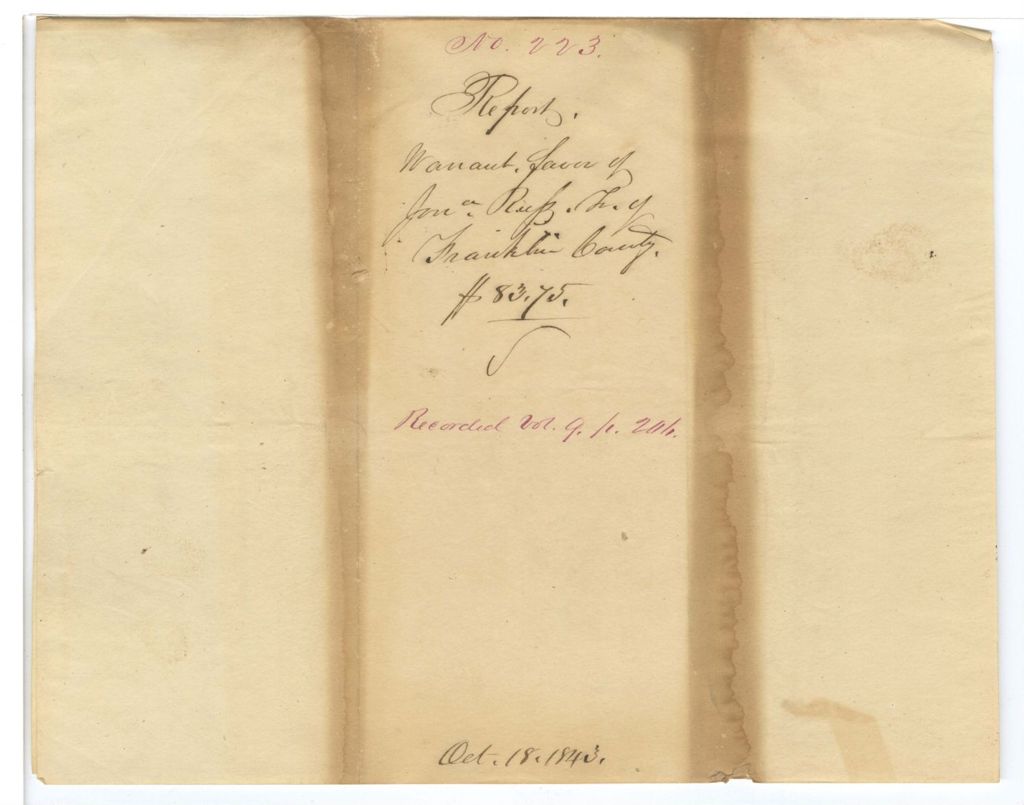 No. 223.
Report.
Warrant, favor of
Jona. Russ, Tr. of
Franklin County.
$83.75.
Recorded Vol. 9. p. 206.
Oct. 18. 1843.